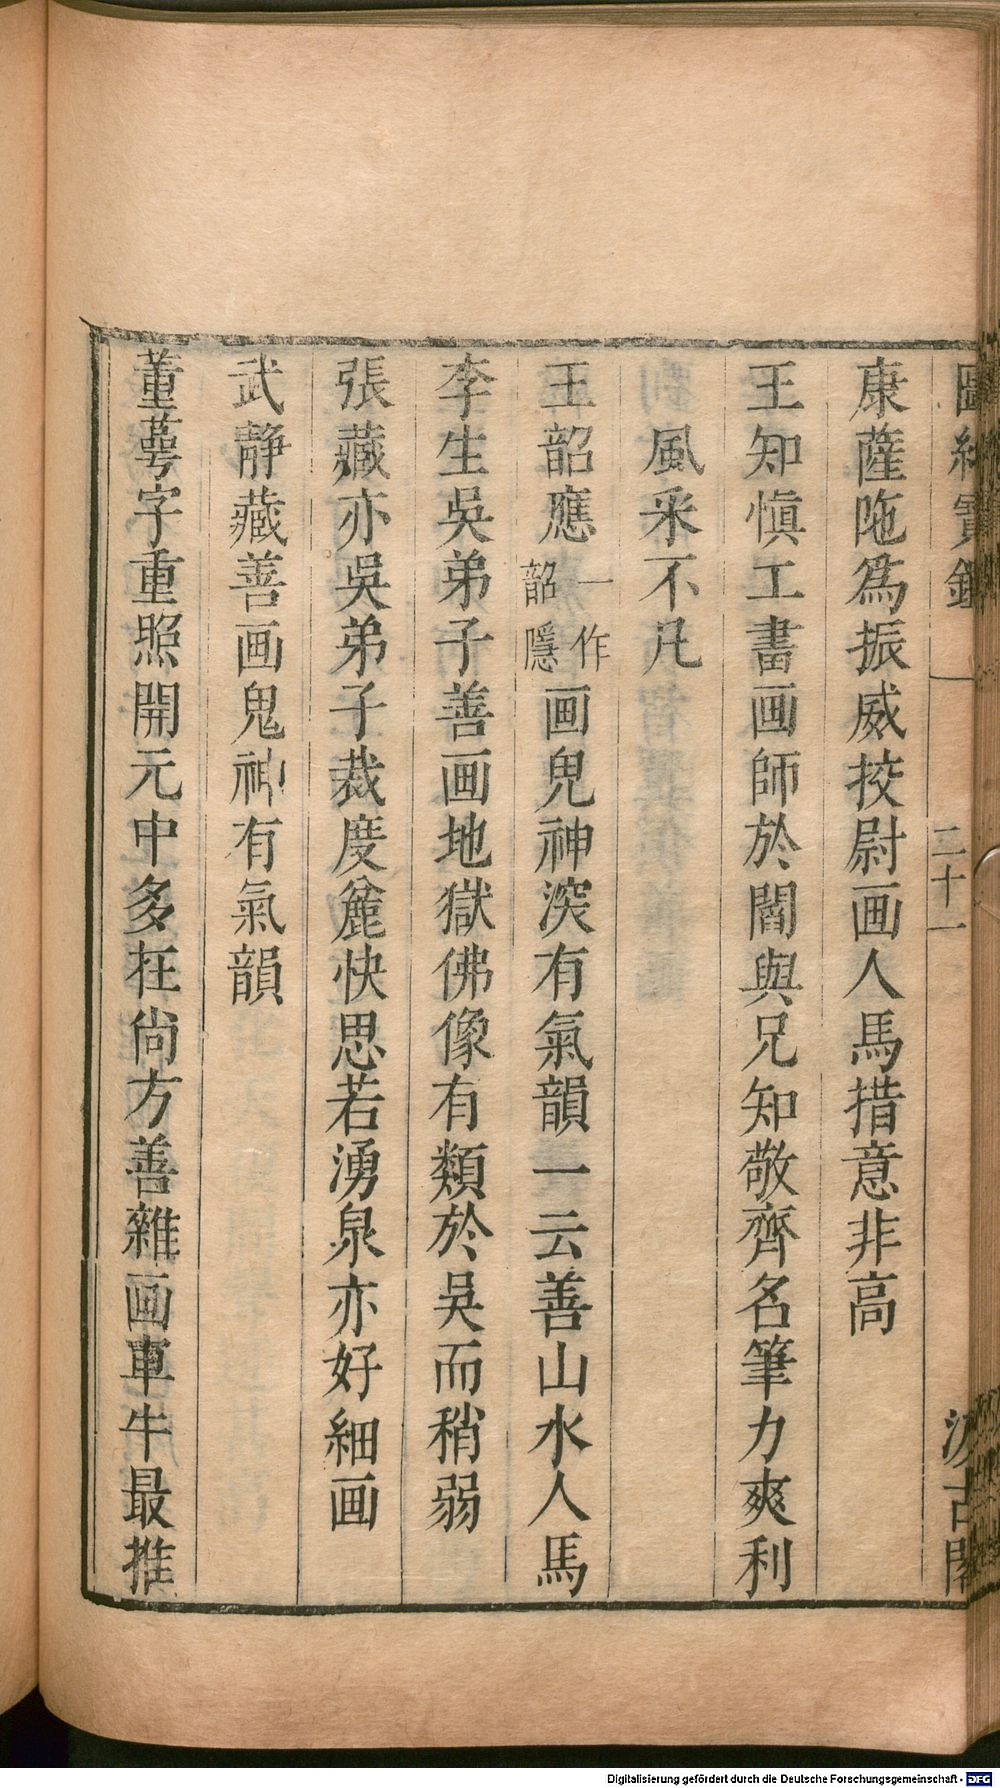 圖繪寶鑑
二十一
汲古閣
康薩陁爲振威挍尉画人馬措意非高
王知愼工畵画師於閻與兄知敬齊名筆力爽利
風采不凡
王韶應一作韶隱画鬼神深有氣韻一云善山水人馬
李生吳弟子善画地獄佛像有類於吳而稍弱
張藏亦吳弟子裁度麄快思若湧泉亦好細画
武靜藏善画鬼神有氣韻
董蕚字重照開元中多在尙方善雜画車牛最推
Digitalisierung gefördert durch die Deutsche Forschungsgemeinschaft - DFG